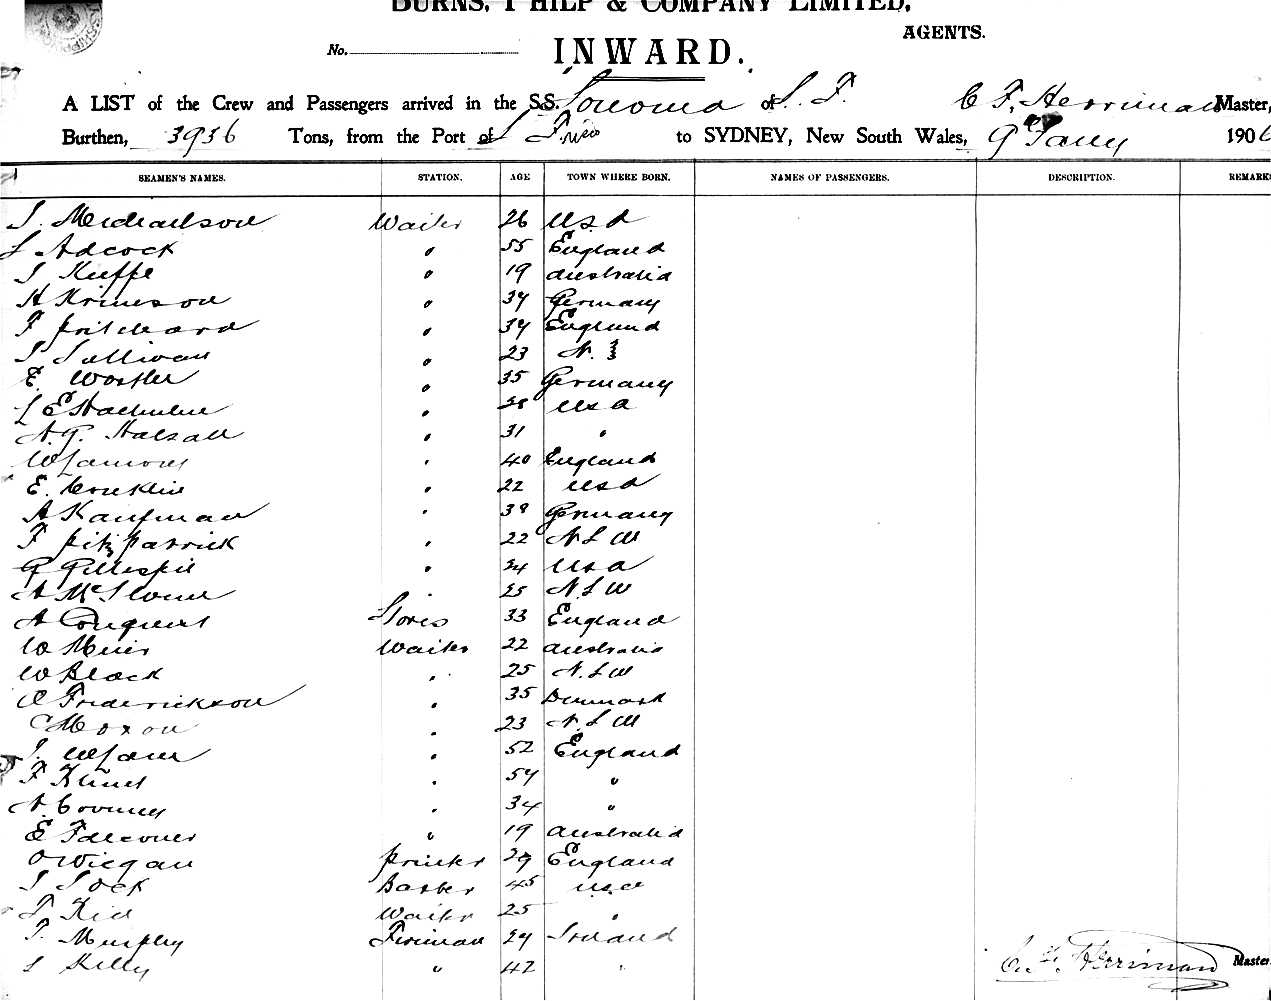 BURNS, PHILP & COMPANY LIMITED,
AGENTS.
No.
INWARD.
A LIST of the Crew and Passengers arrived in the S.S. Sonoma of S. F. C F. Herriman Master,
Burthen, 3936 Tons, from the Port of S Frisco to SYDNEY, New South Wales, 9 Jany 1906
SEAMEN'S NAMES. STATION. AGE TOWN WHERE BORN. NAMES OF PASSENGERS. DESCRIPTION. REMARKS
S. Michaelson Waiter 26 USA
L Adcock " 55 England
S Kuffe " 19 Australia
H Krimson " 34 Germany
F Pritchard " 34 England
S Sullivan " 23 N. Z
E. " 35 Germany
L E " 28 USA
A. G. Halsall " 31 "
" 40 England
E. Conklin " 22 USA
A Kaufman " 38 Germany
F Fitzpatrick " 22 N S W
G Gillespie " 24 USA
A " 25 N. S W
A Conquest Stores 33 England
W Muir Waiter 22 Australia
W Black " 25 N. S W
C Frederickson " 35 Denmark
C Moxon " 23 N. S W
" 52 England
F " 54 "
A. " 34 "
E Falconer " 19 Australia
O Wiegan Printer 29 England
S Sock Barber 45 USA
F Kid Waiter 25 "
T. Murphy Fireman 29 Ireland
S Kelly " 42 "
C. F. Herriman Master